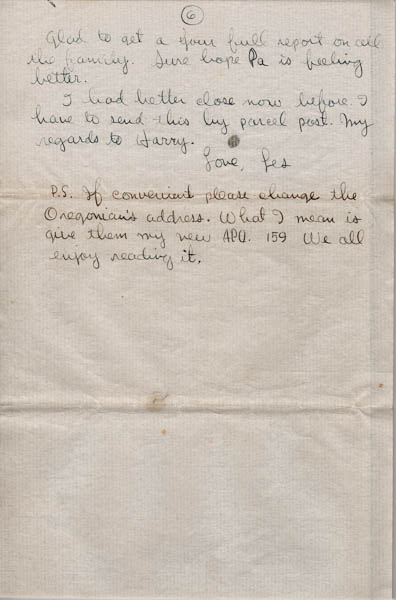 6
Glad to get a your full report on all
the family. Sure hope Pa is feeling
better.
I had better close now before I
have to send this by parcel post. My
regards to Harry.
Love, Les
P.S. If convenient please change the
Oregonian's address. What I mean is
give them my new APO. 159 We all
enjoy reading it.